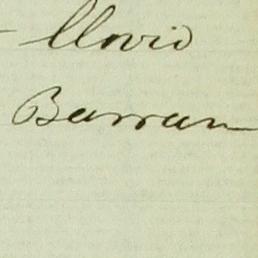 Clovio
Barran